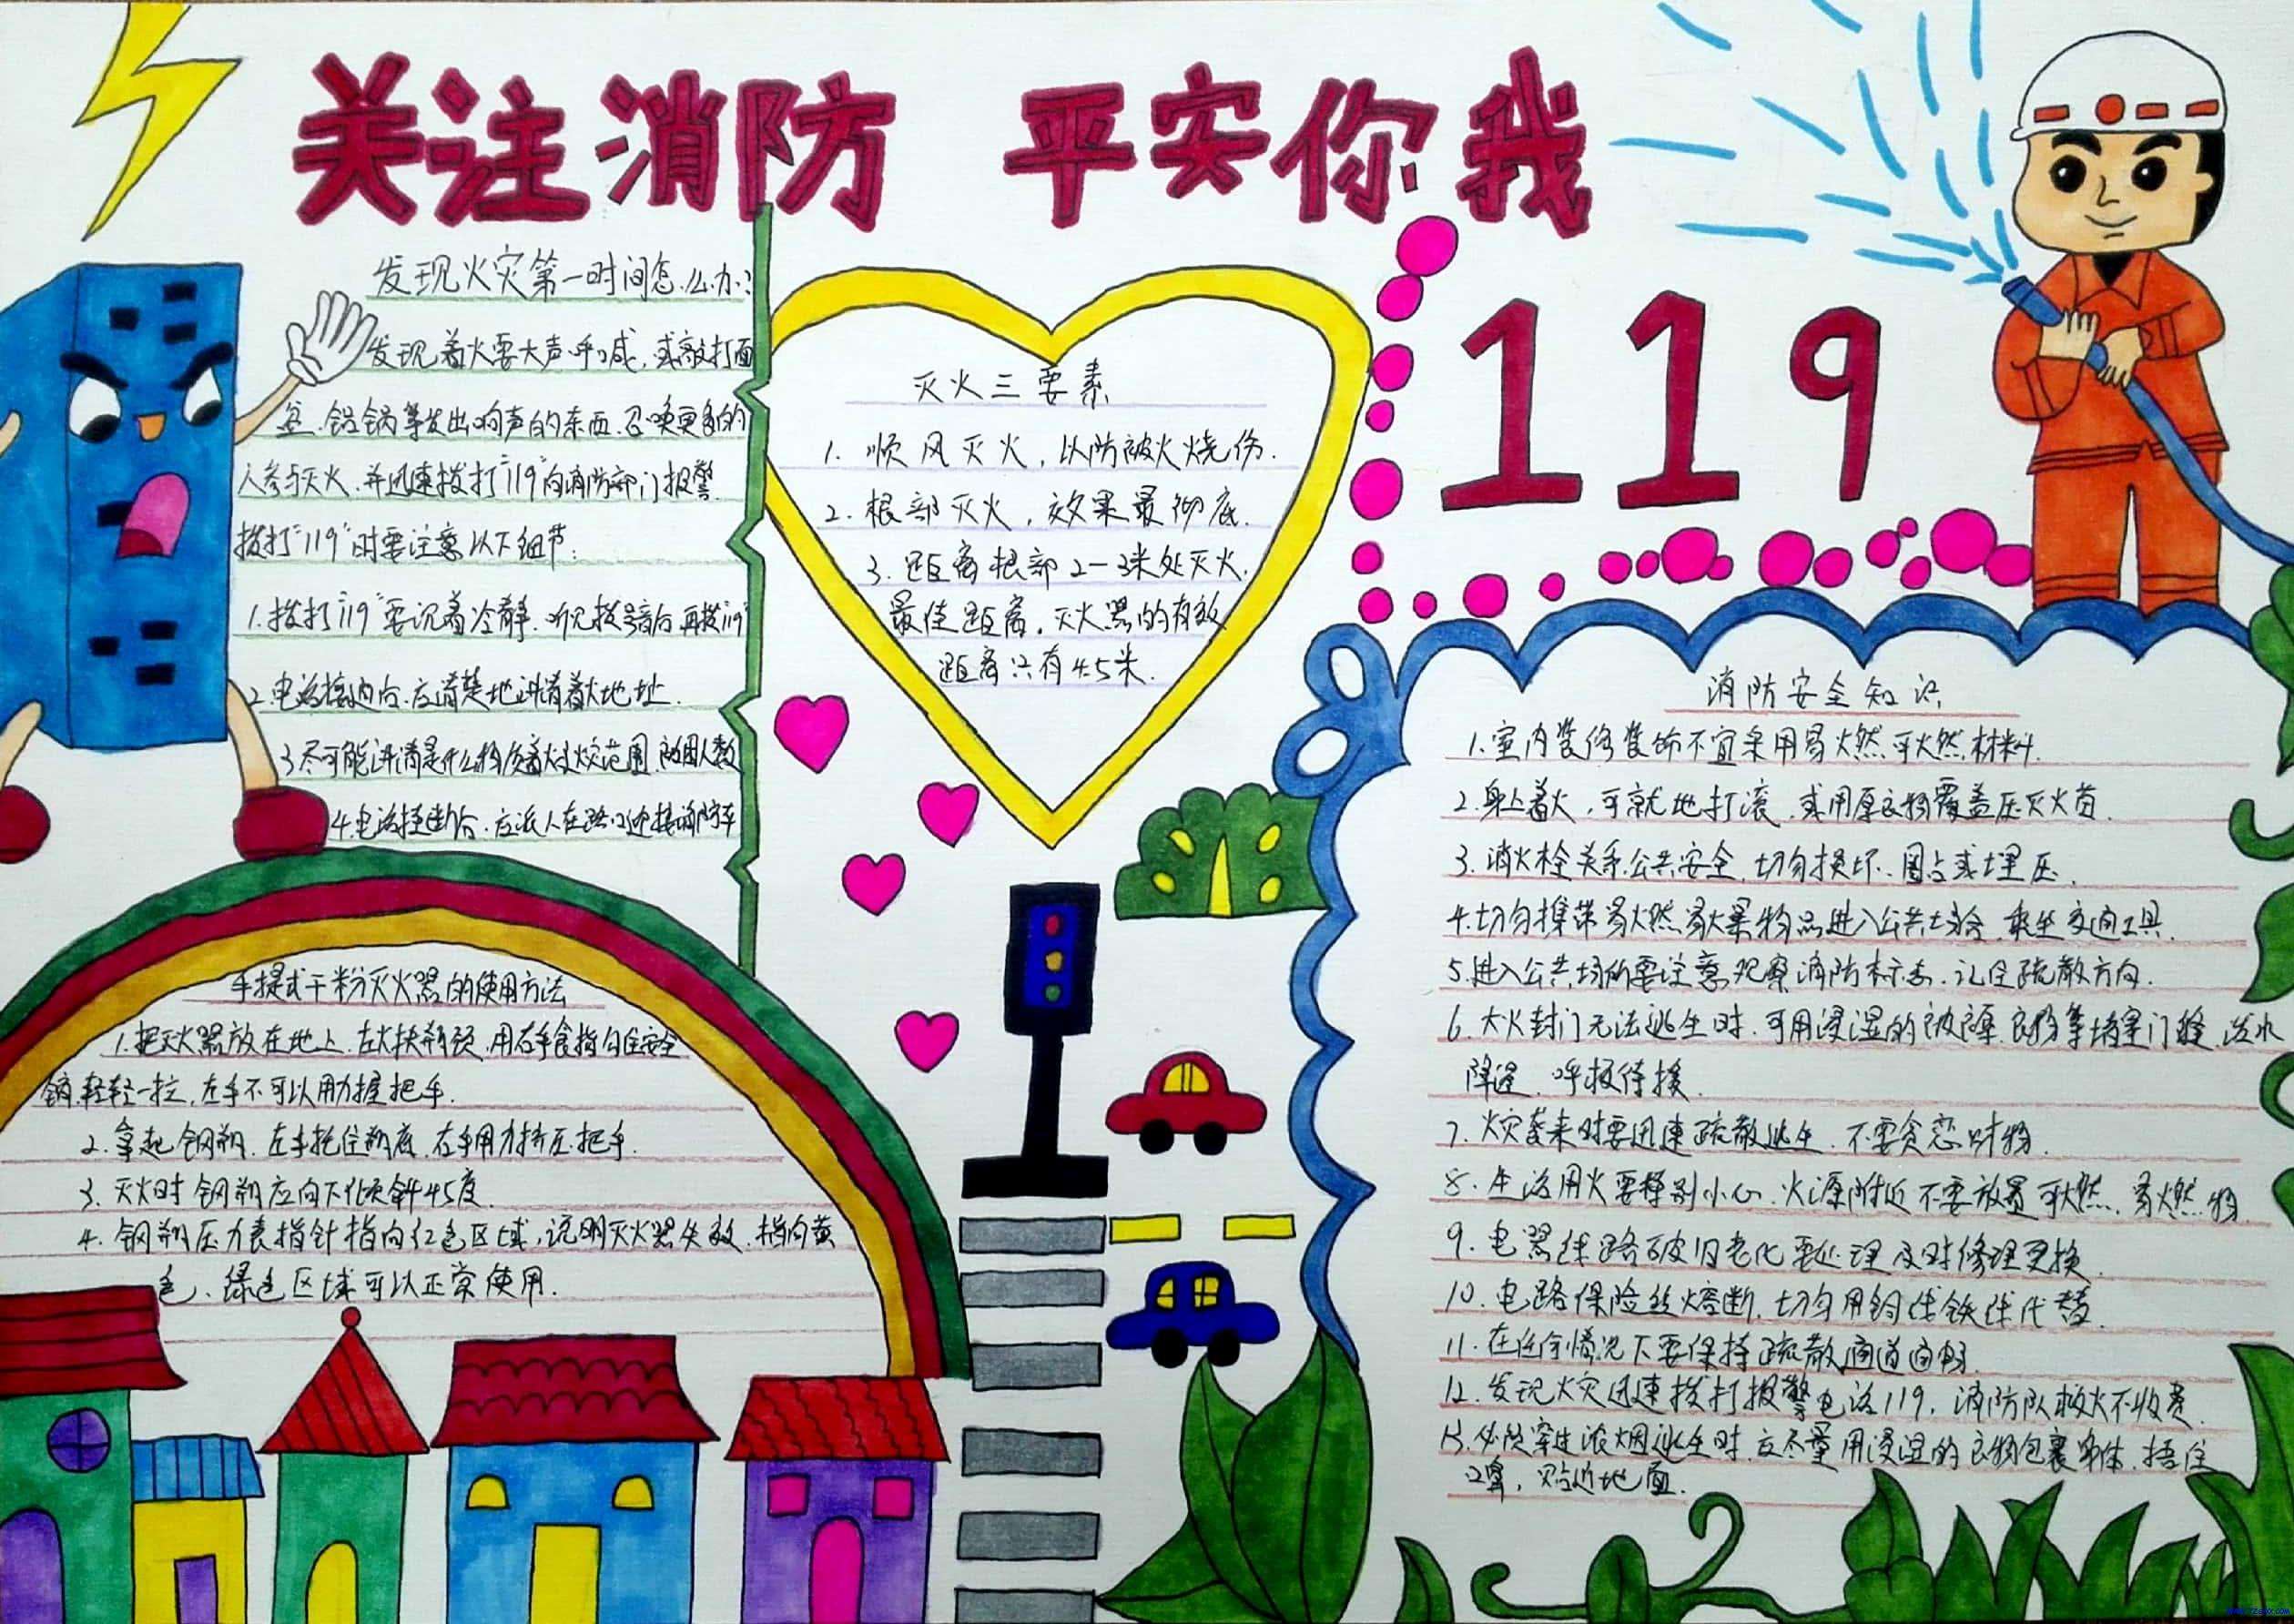 关注消防 平安你我
发现火灾第一时间怎么办?
发现着火要大声呼喊,或敲打面
盆、铝锅等发出响声的东西,召唤更多的
人参与灭火,并迅速拨打"119"向消防部门报警.
拨打"119"时要注意以下细节:
1.拨打"119"要沉着冷静,听见拨号音后,再拨"119"
2.电话接通后,应清楚地讲清着火地址.
3.尽可能讲清是什么物质着火及火灾范围、被困人数
4.电话挂断后,应派人在路口迎接消防车
灭火三要素
1. 顺风灭火,以防被火烧伤.
2. 根部灭火,效果最彻底.
3. 距离根部2—3米处灭火.
最佳距离,灭火器的有效
距离只有4.5米.
119
手提式干粉灭火器的使用方法
1.把灭火器放在地上,左手扶瓶颈,用右手食指勾住安全
销,轻轻一拉,左手不可以用力握把手.
2.拿起钢瓶,左手托住瓶底,右手用力挤压把手.
3. 灭火时钢瓶应向下倾斜45度.
4. 钢瓶压力表指针指向红色区域,说明灭火器失效.指向黄
色、绿色区域可以正常使用.
消防安全知识
1.室内装修装饰不宜采用易燃可燃材料.
2.身上着火,可就地打滚,或用厚衣物覆盖压灭火苗.
3.消火栓关系公共安全,切勿损坏、圈占或埋压.
4.切勿携带易燃易爆物品进入公共场合、乘坐交通工具.
5.进入公共场所要注意观察消防标志,记住疏散方向.
6.大火封门无法逃生时,可用浸湿的被褥、衣物等堵塞门缝,泼水
降温,呼救待援.
7.火灾袭来时要迅速疏散逃生,不要贪恋财物.
8.生活用火要特别小心,火源附近不要放置可燃、易燃物.
9.电器线路破旧老化要处理及时修理更换.
10.电路保险丝熔断,切勿用铜线铁线代替.
11.在任何情况下要保持疏散通道通畅.
12.发现火灾迅速拨打报警电话119,消防队救火不收费.
13.必须穿过浓烟逃生时,应尽量用浸湿的衣物包裹身体,捂住
口鼻,贴近地面.